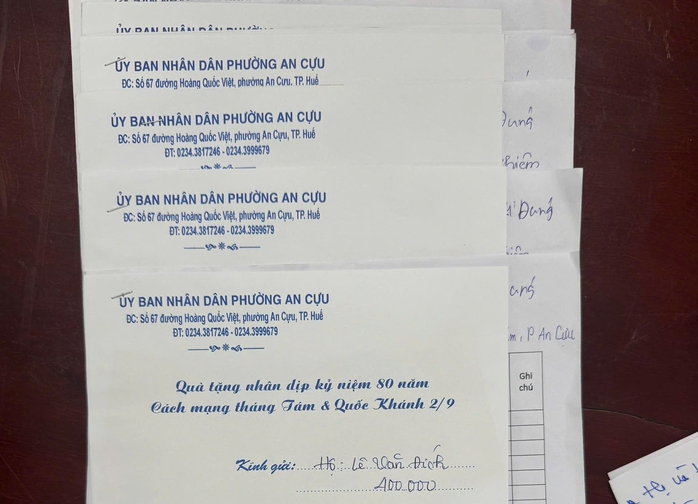 ỦY BAN NHÂN DÂN PHƯỜNG AN CỰU
ĐC: Số 67 đường Hoàng Quốc Việt, phường An Cựu, TP. Huế
ỦY BAN NHÂN DÂN PHƯỜNG AN CỰU
ĐC: Số 67 đường Hoàng Quốc Việt, phường An Cựu, TP. Huế
ĐT: 0234.3817246 - 0234.3999679
ỦY BAN NHÂN DÂN PHƯỜNG AN CỰU
ĐC: Số 67 đường Hoàng Quốc Việt, phường An Cựu, TP. Huế
ĐT: 0234.3817246 - 0234.3999679
ỦY BAN NHÂN DÂN PHƯỜNG AN CỰU
ĐC: Số 67 đường Hoàng Quốc Việt, phường An Cựu, TP. Huế
ĐT: 0234.3817246 - 0234.3999679
Quà tặng nhân dịp kỷ niệm 80 năm
Cách mạng tháng Tám & Quốc Khánh 2/9
Kính gửi: Hộ: Lê Văn Đích
400.000
P An Cựu
Ghi
chú